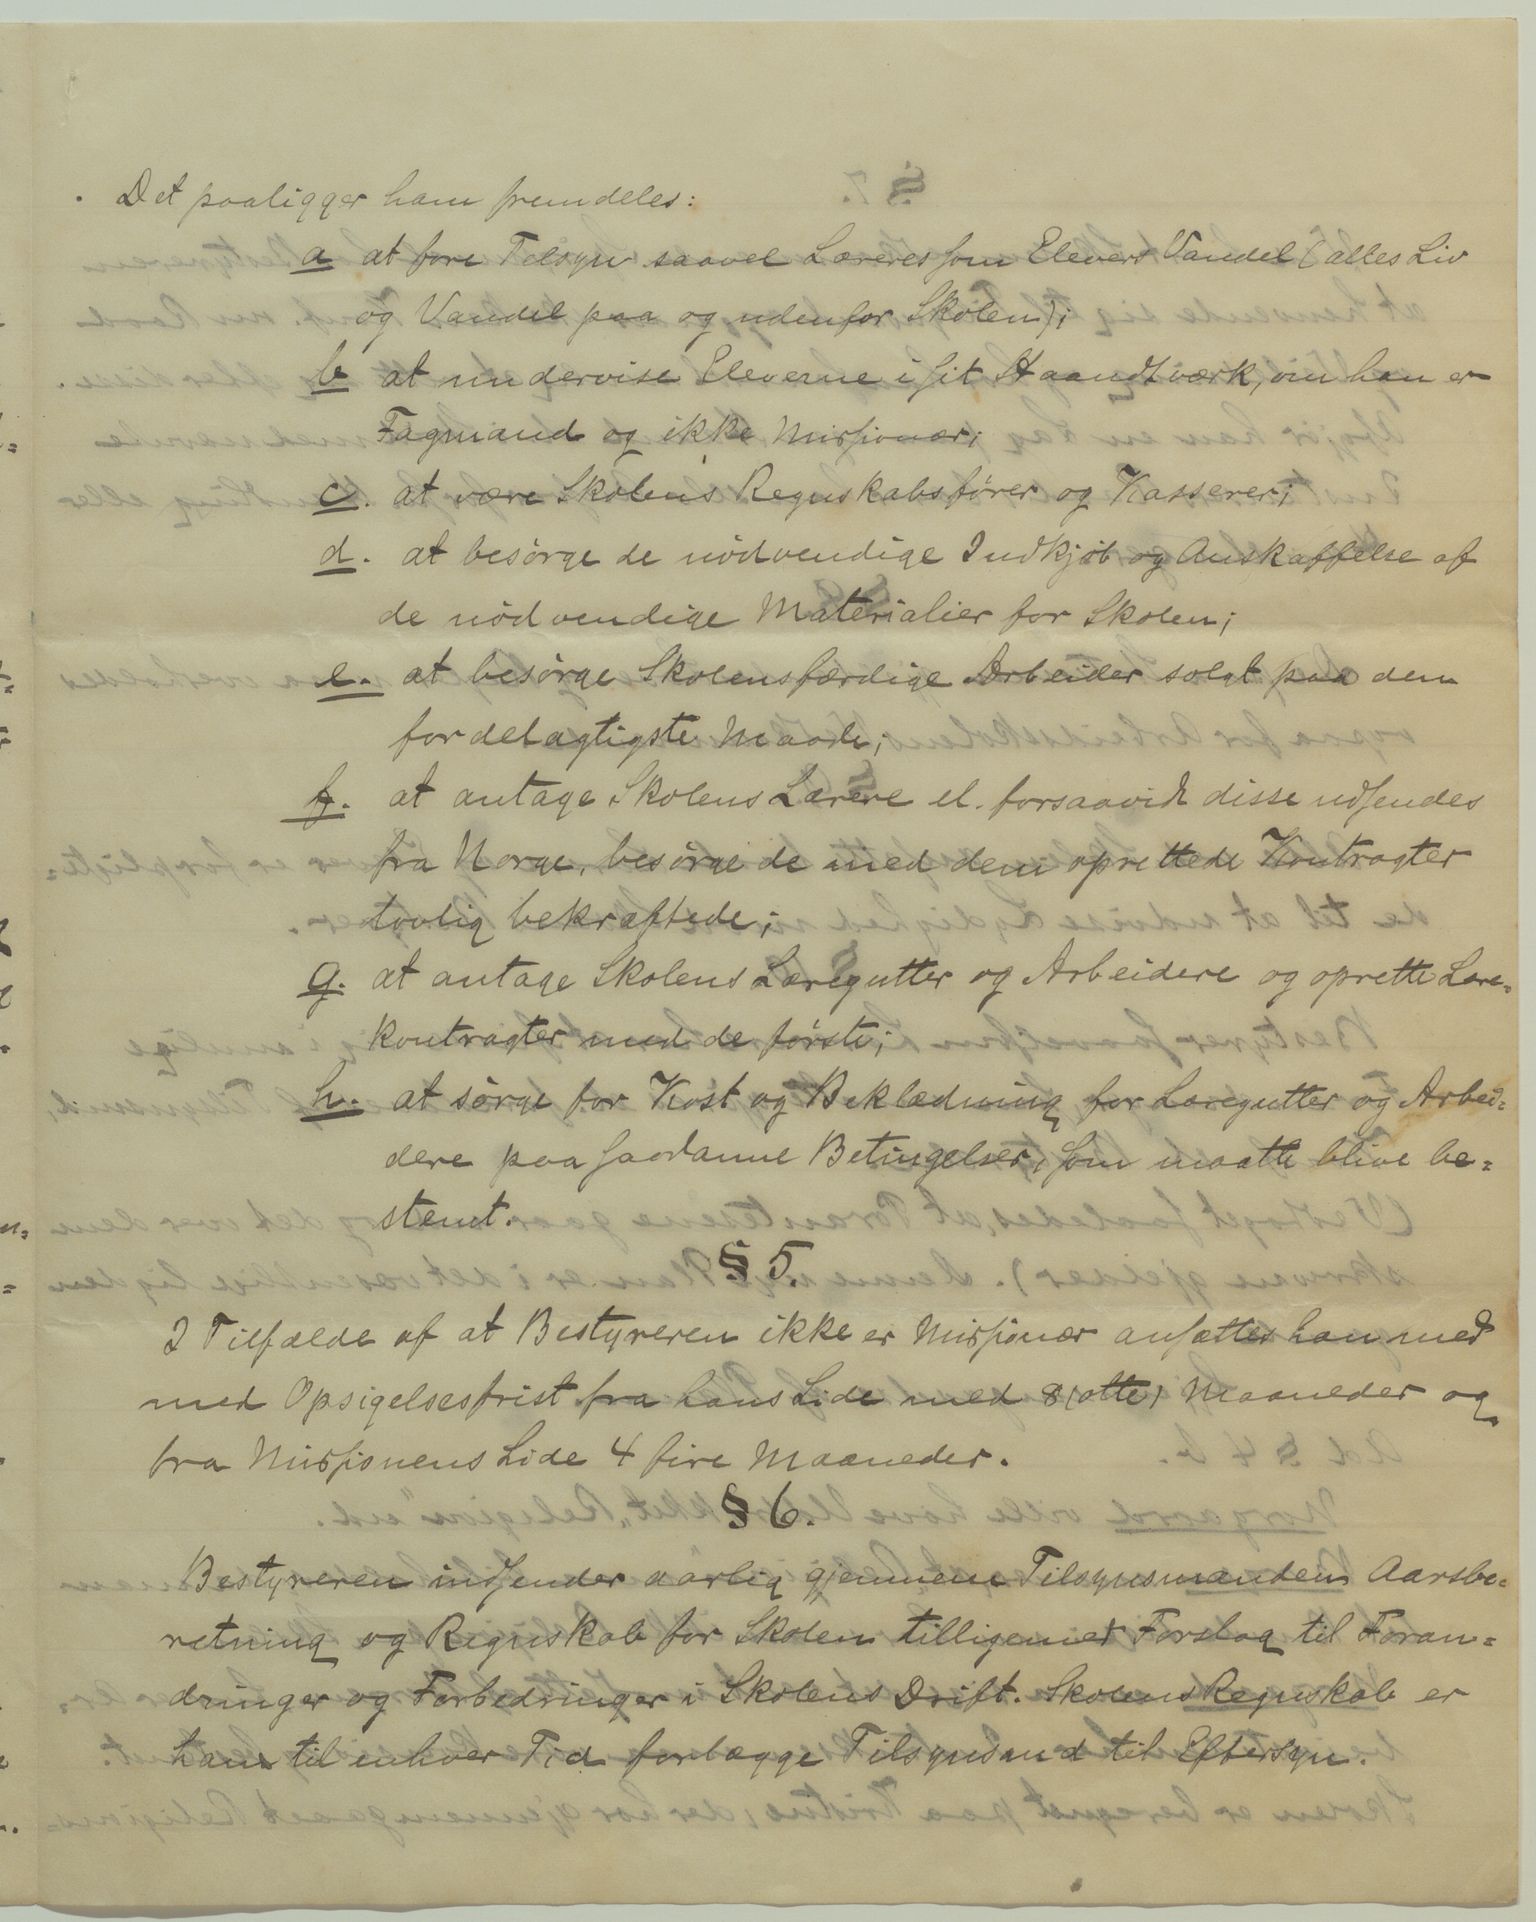 Det paaligger ham fremdeles:
a at føre Tilsyn saavel Læreres som Elevers Vandel (alles Liv
og Vandel paa og udenfor Skolen);
b at undervise Eleverne i sit Haandtværk, om han er
Fagmand og ikke Missionær;
c. at være Skolens Regnskabsfører og Kasserer;
d. at besørge de nødvendige Indkjøb og Anskaffelse af
de nødvendige Materialier for Skolen;
e. at besørge Skolens færdige Arbeider solgt paa den
fordelagtigste Maade;
f. at antage Skolens Lærere el. forsaavidt disse udsendes
fra Norge, besørge de med dem oprettede Kontragter
lovlig bekræftede;
g. at antage Skolens Læregutter og Arbeidere og oprette Lære=
kontragter med de første;
h. at sørge for Kost og Beklædning for Læregutter og Arbei=
dere paa saadanne Betingelser, som maatte blive be=
stemt.
§ 5.
I Tilfælde af at Bestyreren ikke er Missionær ansættes han med
med Opsigelsesfrist fra hans Side med 8 (otte) Maaneder og
fra Missionens Side 4 fire Maaneder.
§ 6.
Bestyreren indsender aarlig gjennem Tilsynsmanden Aarsbe=
retning og Regnskab for Skolen tilligemed Forslag til Foran=
dringer og Forbedringer i Skolens Drift. Skolens Regnskab er
han til enhver Tid forlægge Tilsynsmd til Eftersyn.